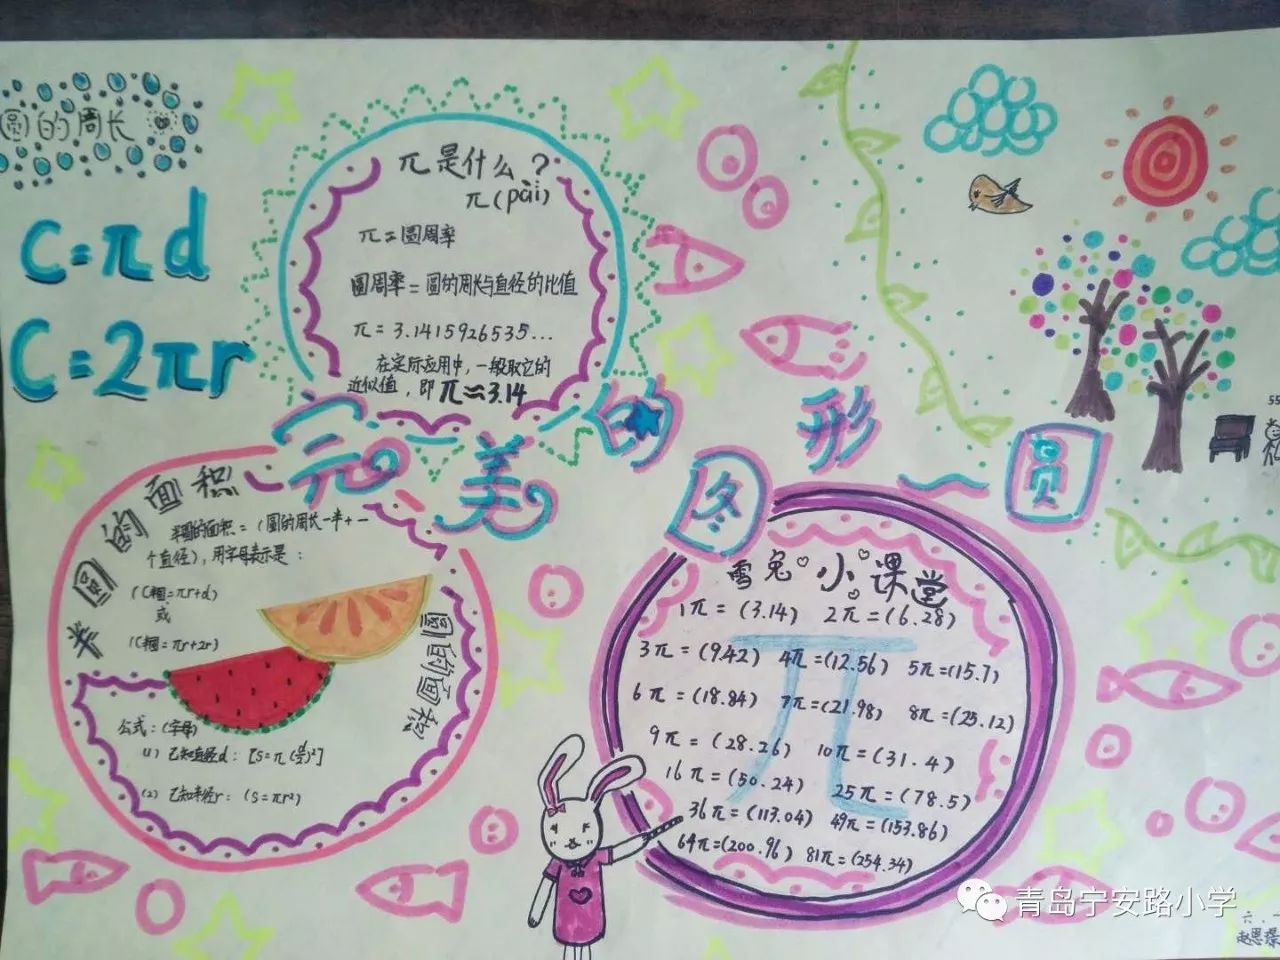 圆的周长
C=πd
C=2πr
π是什么？
π(pài)
π=圆周率
圆周率=圆的周长与直径的比值
π=3.1415926535...
在实际应用中，一般取它的
近似值，即π≈3.14
完美的图形—圆
半圆的面积
半圆的面积=(圆的周长一半+一
个直径)，用字母表示是：
(C半圆=πr+d)
或
(C半圆=πr+2r)
圆的面积
公式：(字母)
(1) 已知直径d：[S=π(d/2)²]
(2) 已知半径r：(S=πr²)
雪兔小课堂
1π=(3.14) 2π=(6.28)
3π=(9.42) 4π=(12.56) 5π=(15.7)
6π=(18.84) 7π=(21.98) 8π=(25.12)
9π=(28.26) 10π=(31.4)
16π=(50.24) 25π=(78.5)
36π=(113.04) 49π=(153.86)
64π=(200.96) 81π=(254.34)
π
55
青岛宁安路小学
六.